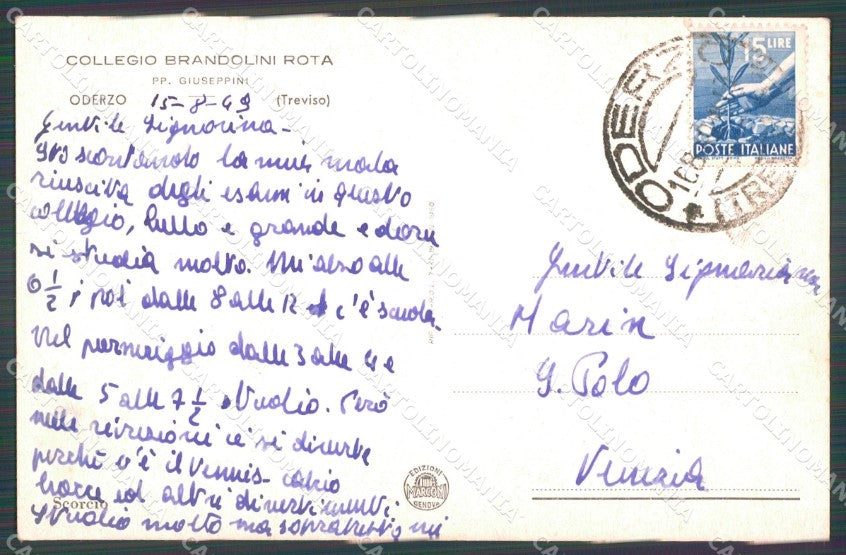 COLLEGIO BRANDOLINI ROTA
PP. GIUSEPPINI
ODERZO 15-8-49 (Treviso)
Gentile Signorina -
Sto scontando la mia mala
riuscita degli esami in questo
collegio, bello e grande e dove
si studia molto. Mi alzo alle
6 1/2, poi dalle 8 alle 12 c'è scuola.
Nel pomeriggio dalle 3 alle 4 e
dalle 5 alle 7 1/2 studio. Però
nelle ricreazioni ci si diverte
perchè c'è il tennis - calcio
bocce ed altri divertimenti
Studio molto ma soprattutto mi
Scorcio
EDIZIONI
MARCONI
GENOVA
15 LIRE
POSTE ITALIANE
ODERZO
Gentile Signorina
Marin
S. Polo
Venezia
CARTOLINOMANIA